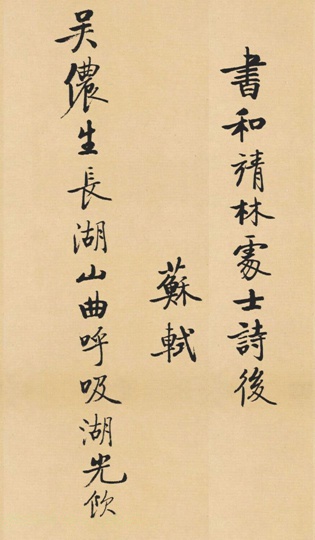 書和靖林處士詩後
蘇軾
吴儂生長湖山曲呼吸湖光飲